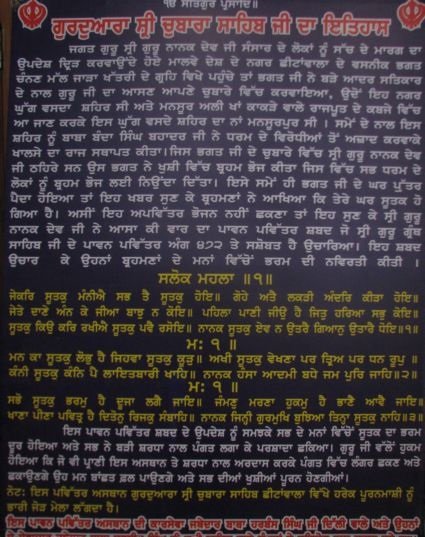 ੴ ਸਤਿਗੁਰ ਪ੍ਰਸਾਦਿ॥
ਗੁਰਦੁਆਰਾ ਸ੍ਰੀ ਚੁਬਾਰਾ ਸਾਹਿਬ ਜੀ ਦਾ ਇਤਿਹਾਸ
ਜਗਤ ਗੁਰੂ ਸ੍ਰੀ ਗੁਰੂ ਨਾਨਕ ਦੇਵ ਜੀ ਸੰਸਾਰ ਦੇ ਲੋਕਾਂ ਨੂੰ ਸੱਚ ਦੇ ਮਾਰਗ ਦਾ
ਉਪਦੇਸ਼ ਦ੍ਰਿੜ ਕਰਵਾਉਂਦੇ ਹੋਏ ਮਾਲਵੇ ਦੇਸ਼ ਦੇ ਨਗਰ ਛੀਟਾਂਵਾਲਾ ਦੇ ਵਸਨੀਕ ਭਗਤ
ਚੰਨਣ ਮੱਲ ਜਾੜਾ ਖੱਤਰੀ ਦੇ ਗ੍ਰਹਿ ਵਿਖੇ ਪਹੁੰਚੇ ਤਾਂ ਭਗਤ ਜੀ ਨੇ ਬੜੇ ਆਦਰ ਸਤਿਕਾਰ
ਦੇ ਨਾਲ ਗੁਰੂ ਜੀ ਦਾ ਆਸਣ ਆਪਣੇ ਚੁਬਾਰੇ ਵਿੱਚ ਕਰਵਾਇਆ, ਉਦੋਂ ਇਹ ਨਗਰ
ਘੁੱਗ ਵਸਦਾ ਸ਼ਹਿਰ ਸੀ ਅਤੇ ਮਨਸੂਰ ਅਲੀ ਖਾਂ ਕਾਕੜੇ ਵਾਲੇ ਰਾਜਪੂਤ ਦੇ ਕਬਜੇ ਵਿੱਚ
ਆ ਜਾਣ ਕਰਕੇ ਇਸ ਘੁੱਗ ਵਸਦੇ ਸ਼ਹਿਰ ਦਾ ਨਾਂ ਮਨਸੂਰਪੁਰ ਸੀ । ਸਮੇਂ ਦੇ ਨਾਲ ਇਸ
ਸ਼ਹਿਰ ਨੂੰ ਬਾਬਾ ਬੰਦਾ ਸਿੰਘ ਬਹਾਦਰ ਜੀ ਨੇ ਧਰਮ ਦੇ ਵਿਰੋਧੀਆਂ ਤੋਂ ਅਜ਼ਾਦ ਕਰਵਾਕੇ
ਖਾਲਸੇ ਦਾ ਰਾਜ ਸਥਾਪਤ ਕੀਤਾ।ਜਿਸ ਭਗਤ ਜੀ ਦੇ ਚੁਬਾਰੇ ਵਿੱਚ ਸ੍ਰੀ ਗੁਰੂ ਨਾਨਕ ਦੇਵ
ਜੀ ਠਹਿਰੇ ਸਨ ਉਸ ਭਗਤ ਨੇ ਖੁਸ਼ੀ ਵਿੱਚ ਬ੍ਰਹਮ ਭੋਜ ਕੀਤਾ ਜਿਸ ਵਿੱਚ ਸਭ ਧਰਮ ਦੇ
ਲੋਕਾਂ ਨੂੰ ਬ੍ਰਹਮ ਭੋਜ ਲਈ ਨਿਉਂਦਾ ਦਿੱਤਾ। ਇਸੇ ਸਮੇਂ ਹੀ ਭਗਤ ਜੀ ਦੇ ਘਰ ਪੁੱਤਰ
ਪੈਦਾ ਹੋਇਆ ਤਾਂ ਇਹ ਖਬਰ ਸੁਣ ਕੇ ਬ੍ਰਹਮਣਾਂ ਨੇ ਆਖਿਆ ਕਿ ਤੇਰੇ ਘਰ ਸੂਤਕ ਹੋ
ਗਿਆ ਹੈ। ਅਸੀਂ ਇਹ ਅਪਵਿੱਤਰ ਭੋਜਨ ਨਹੀਂ ਛਕਣਾ ਤਾਂ ਇਹ ਸੁਣ ਕੇ ਸ੍ਰੀ ਗੁਰੂ
ਨਾਨਕ ਦੇਵ ਜੀ ਨੇ ਆਸਾ ਕੀ ਵਾਰ ਦਾ ਪਾਵਨ ਪਵਿੱਤਰ ਸ਼ਬਦ ਜੋ ਸ੍ਰੀ ਗੁਰੂ ਗ੍ਰੰਥ
ਸਾਹਿਬ ਜੀ ਦੇ ਪਾਵਨ ਪਵਿੱਤਰ ਅੰਗ ੪੭੨ ਤੇ ਸਸ਼ੋਬਤ ਹੈ ਉਚਾਰਿਆ। ਇਹ ਸ਼ਬਦ
ਉਚਾਰ ਕੇ ਉਹਨਾਂ ਬ੍ਰਹਮਣਾਂ ਦੇ ਮਨਾਂ ਵਿੱਚੋਂ ਭਰਮ ਦੀ ਨਵਿਰਤੀ ਕੀਤੀ ।
ਸਲੋਕ ਮਹਲਾ ॥੧॥
ਜੇਕਰਿ ਸੂਤਕੁ ਮੰਨੀਐ ਸਭ ਤੈ ਸੂਤਕੁ ਹੋਇ॥ ਗੋਹੇ ਅਤੈ ਲਕੜੀ ਅੰਦਰਿ ਕੀੜਾ ਹੋਇ॥
ਜੇਤੇ ਦਾਣੇ ਅੰਨ ਕੇ ਜੀਆ ਬਾਝੁ ਨ ਕੋਇ॥ ਪਹਿਲਾ ਪਾਣੀ ਜੀਉ ਹੈ ਜਿਤੁ ਹਰਿਆ ਸਭੁ ਕੋਇ॥
ਸੂਤਕੁ ਕਿਉ ਕਰਿ ਰਖੀਐ ਸੂਤਕੁ ਪਵੈ ਰਸੋਇ॥ ਨਾਨਕ ਸੂਤਕੁ ਏਵ ਨ ਉਤਰੈ ਗਿਆਨੁ ਉਤਾਰੈ ਧੋਇ॥੧॥
ਮ: ੧ ॥
ਮਨ ਕਾ ਸੂਤਕੁ ਲੋਭੁ ਹੈ ਜਿਹਵਾ ਸੂਤਕੁ ਕੂੜੁ॥ ਅਖੀ ਸੂਤਕੁ ਵੇਖਣਾ ਪਰ ਤ੍ਰਿਅ ਪਰ ਧਨ ਰੂਪੁ ॥
ਕੰਨੀ ਸੂਤਕੁ ਕੰਨਿ ਪੈ ਲਾਇਤਬਾਰੀ ਖਾਹਿ॥ ਨਾਨਕ ਹੰਸਾ ਆਦਮੀ ਬਧੇ ਜਮ ਪੁਰਿ ਜਾਹਿ॥੨॥
ਮ: ੧ ॥
ਸਭੋ ਸੂਤਕੁ ਭਰਮੁ ਹੈ ਦੂਜਾ ਲਗੈ ਜਾਇ॥ ਜੰਮਣੁ ਮਰਣਾ ਹੁਕਮੁ ਹੈ ਭਾਣੈ ਆਵੈ ਜਾਇ॥
ਖਾਣਾ ਪੀਣਾ ਪਵਿਤ੍ਰੁ ਹੈ ਦਿਤੋਨੁ ਰਿਜਕੁ ਸੰਬਾਹਿ॥ ਨਾਨਕ ਜਿਨੀ ਗੁਰਮੁਖਿ ਬੁਝਿਆ ਤਿਨਾ ਸੂਤਕੁ ਨਾਹਿ॥੩॥
ਇਸ ਪਾਵਨ ਪਵਿੱਤਰ ਸ਼ਬਦ ਦੇ ਉਪਦੇਸ਼ ਨੂੰ ਸਮਝਕੇ ਸਭ ਦੇ ਮਨਾਂ ਵਿੱਚੋਂ ਸੂਤਕ ਦਾ ਭਰਮ
ਦੂਰ ਹੋਇਆ ਅਤੇ ਸਭ ਨੇ ਬੜੀ ਸ਼ਰਧਾ ਨਾਲ ਪੰਗਤ ਲਗਾ ਕੇ ਪਰਸ਼ਾਦਾ ਛਕਿਆ। ਗੁਰੂ ਜੀ ਵਲੋਂ ਹੁਕਮ
ਹੋਇਆ ਕਿ ਜੋ ਵੀ ਪ੍ਰਾਣੀ ਇਸ ਅਸਥਾਨ ਤੇ ਸ਼ਰਧਾ ਨਾਲ ਅਰਦਾਸ ਕਰਕੇ ਪੰਗਤ ਵਿੱਚ ਲੰਗਰ ਛਕਣ ਅਤੇ
ਛਕਾਉਣਗੇ ਉਹ ਮਨ ਬਾਂਛਤ ਫ਼ਲ ਪਾਉਣਗੇ ਅਤੇ ਸਭ ਦੀਆਂ ਖੁਸ਼ੀਆਂ ਪੂਰਨ ਹੋਣਗੀਆਂ।
ਨੋਟ: ਇਸ ਪਵਿੱਤਰ ਅਸਥਾਨ ਗੁਰਦੁਆਰਾ ਸ੍ਰੀ ਚੁਬਾਰਾ ਸਾਹਿਬ ਛੀਟਾਂਵਾਲਾ ਵਿੱਖੇ ਹਰੇਕ ਪੂਰਨਮਾਸ਼ੀ ਨੂੰ
ਭਾਰੀ ਜੋੜ ਮੇਲਾ ਲੱਗਦਾ ਹੈ।
ਇਸ ਪਾਵਨ ਪਵਿੱਤਰ ਅਸਥਾਨ ਦੀ ਕਾਰਸੇਵਾ ਜਥੇਦਾਰ ਬਾਬਾ ਹਰਬੰਸ ਸਿੰਘ ਜੀ ਦਿੱਲੀ ਵਾਲੇ ਅਤੇ ਉਹਨਾਂ